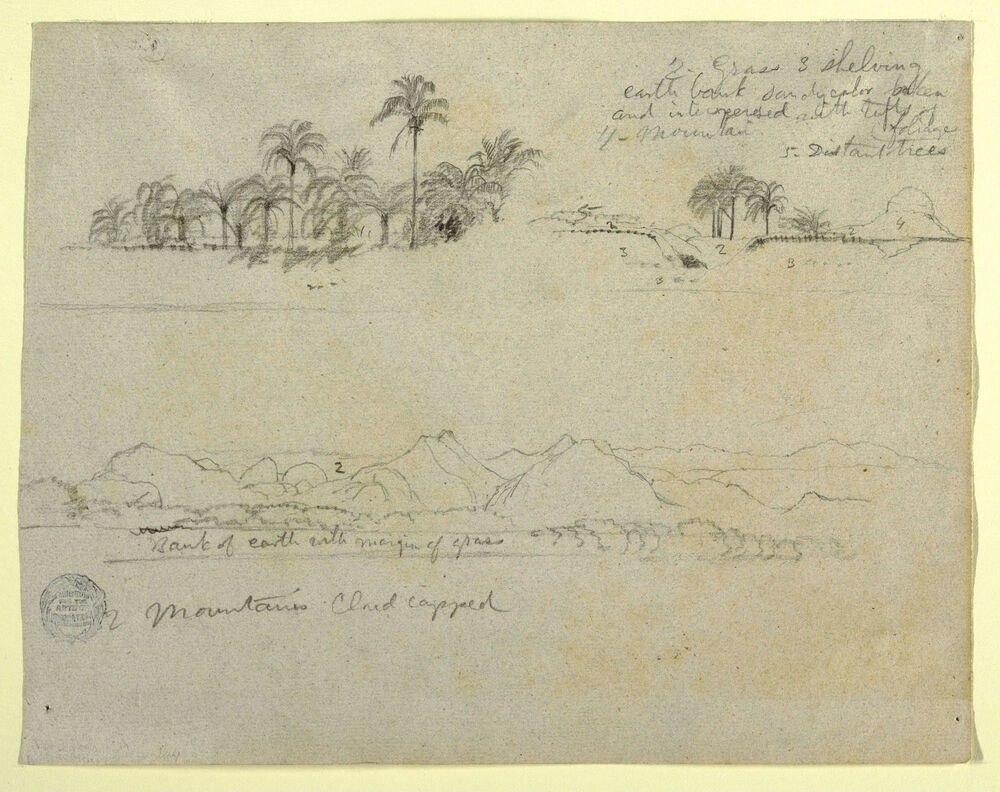 2- Grass 3 shelving
earth bank sandy color
and interspersed with tufts of
foliage
4- Mountain
5- Distant trees
5
2
3
3
2
3
2
4
2
Bank of earth with margin of grass
2 Mountains Cloud capped
MUSEUM
FOR THE
ARTS OF